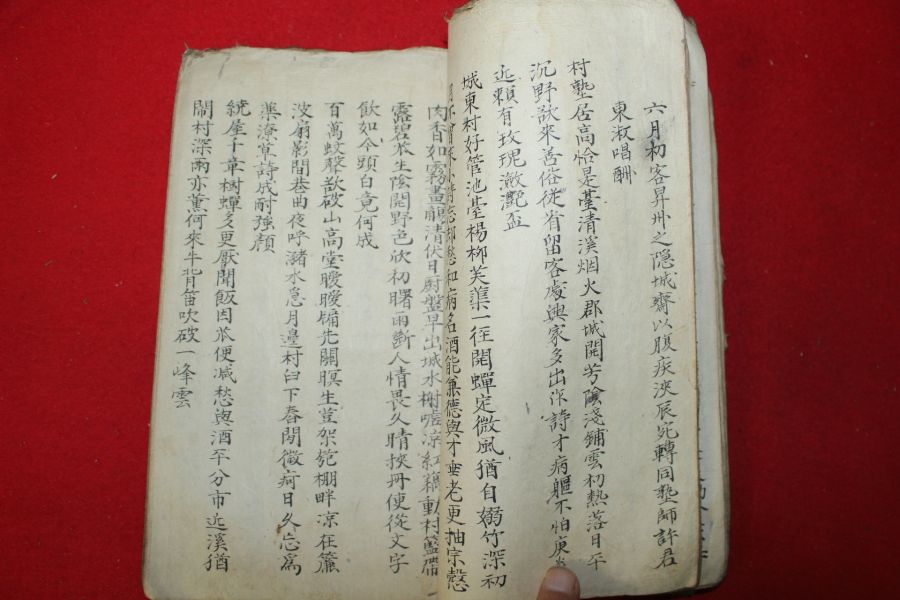 六月初客昇州之隠城齋以腹疾浹辰宛轉同塾師許君
東淑唱酬
村塾居高恰是臺清溪烟火郡城開芳陰淺鋪雲初熱落日平
沉野欲來舊俗從看留客處輿家多出作詩才病軀不怕庚
近頼有玫瑰瀲灔盃
城東村好管池臺楊柳芙蕖一徑開蟬定微風猶自嫋竹深初
愁和病名酒能兼德與才垂老更抽宗慤
肉香如霧晝簾清伏日廚盤早出城水榭嘘凉紅藕動村籃帶
露碧苽生陰開野色欣初曙雨斷人情畏久晴挾冊使從文字
飲如今頭白竟何成
百萬蚊聲欲破山高堂曖曖牖先關暝生荳架匏棚畔凉在簾
波扇影間巷曲夜呼瀦水急月邊村臼下舂閒微疴日久忘爲
藥潦草詩成耐強顔
繞屋千章樹蟬多更厭聞飯因苽便减愁與酒平分市近溪猶
鬧村深雨亦薰何來牛背笛吹破一峰雲